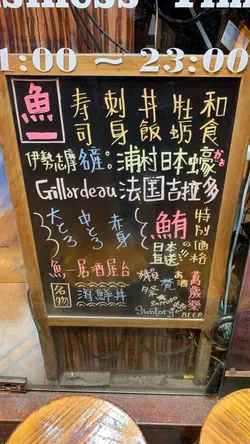 Business Time
1:00 ～ 23:00
魚一
寿司 刺身 丼飯 牡蛎 和食
伊勢志摩名産。浦村日本蠔
かき
Gillardeau 法国吉拉多
大とろ 中とろ 赤身
鮪の日本直送!!
特別価格
魚一居酒屋台
名物 海鮮丼
獺祭 梵 お酒 萬歲樂
SAPPORO
Suntory BEER